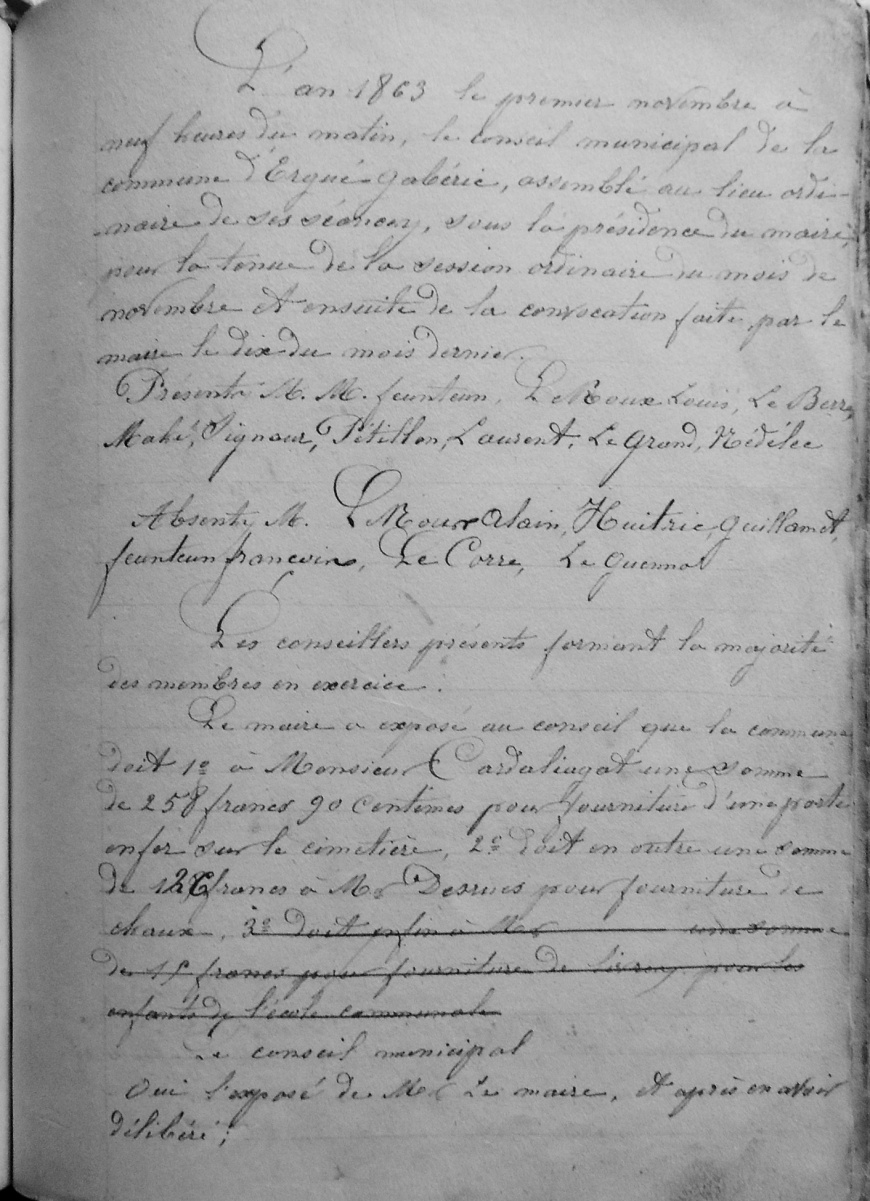 L'an 1863 le premier novembre à
neuf heures du matin, le conseil municipal de la
commune d'Ergué-gabéric, assemblé au lieu ordi-
naire de ses séances, sous la présidence du maire,
pour la tenue de la session ordinaire du mois de
novembre et ensuite de la convocation faite, par le
maire le dix du mois dernier.
Présents M. M. feunteun, Le Roux Louis, Le Berre,
Mahé, Signour, Pétillon, Laurent, Le grand, Nédélec
Absents M. Le Roux alain, Huitric, guillamet,
feunteun françois, Le Corre, Le guenno
Les conseillers présents formant la majorité
des membres en exercice.
Le maire a exposé au conseil que la commune
doit 1º à Monsieur Cardaliagat une somme
de 258 francs 90 centimes pour fourniture d'une porte
en fer sur le cimetière, 2º doit en outre une somme
de francs à Mr Desrues pour fourniture de
chaux, 3º doit enfin à Mr une somme
de francs pour fourniture de livres pour les
enfants de l'école communale
Le conseil municipal
Oui l'exposé de Mr Le maire, et après en avoir
délibéré;